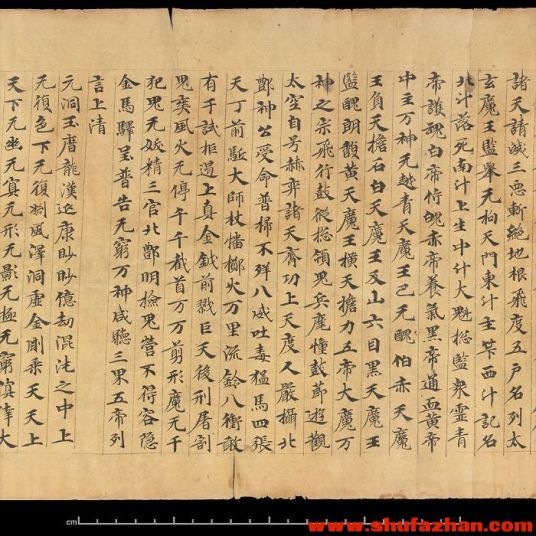 諸天請滅三惡斬絶地根飛度五戶名列太
玄魔王監舉无拘天門東斗主筭西斗記名
北斗落死南斗上生中斗大魁揔監衆靈青
帝護魂白帝侍魄赤帝養氣黑帝通血黄帝
中主万神无越青天魔王巴无醜伯赤天魔
王負天擔石白天魔王反山六目黑天魔王
監醜朗馥黄天魔王横天擔力五帝大魔万
神之宗飛行鼓從揔領鬼兵麾幢鼓節遊觀
太空自号赫弈諸天齊功上天度人嚴攝北
酆神公受命普掃不祥八威吐毒猛馬四張
天丁前駈大師杖幡擲火万里流鈴八衝敢
有干試拒遏上真金鉞前戮巨天後刑屠割
鬼爽風火无停千千截首万万剪形魔无干
犯鬼无妖精三官北酆明檢鬼營不得容隠
金馬驛呈普告无窮万神咸聽三界五帝列
言上清
元洞玉曆龍漢延康眇眇億劫混沌之中上
无復色下无復淵風澤洞虚金剛乘天天上
天下无幽无冥无形无影无極无窮溟涬大
cm
www.shufazhan.com